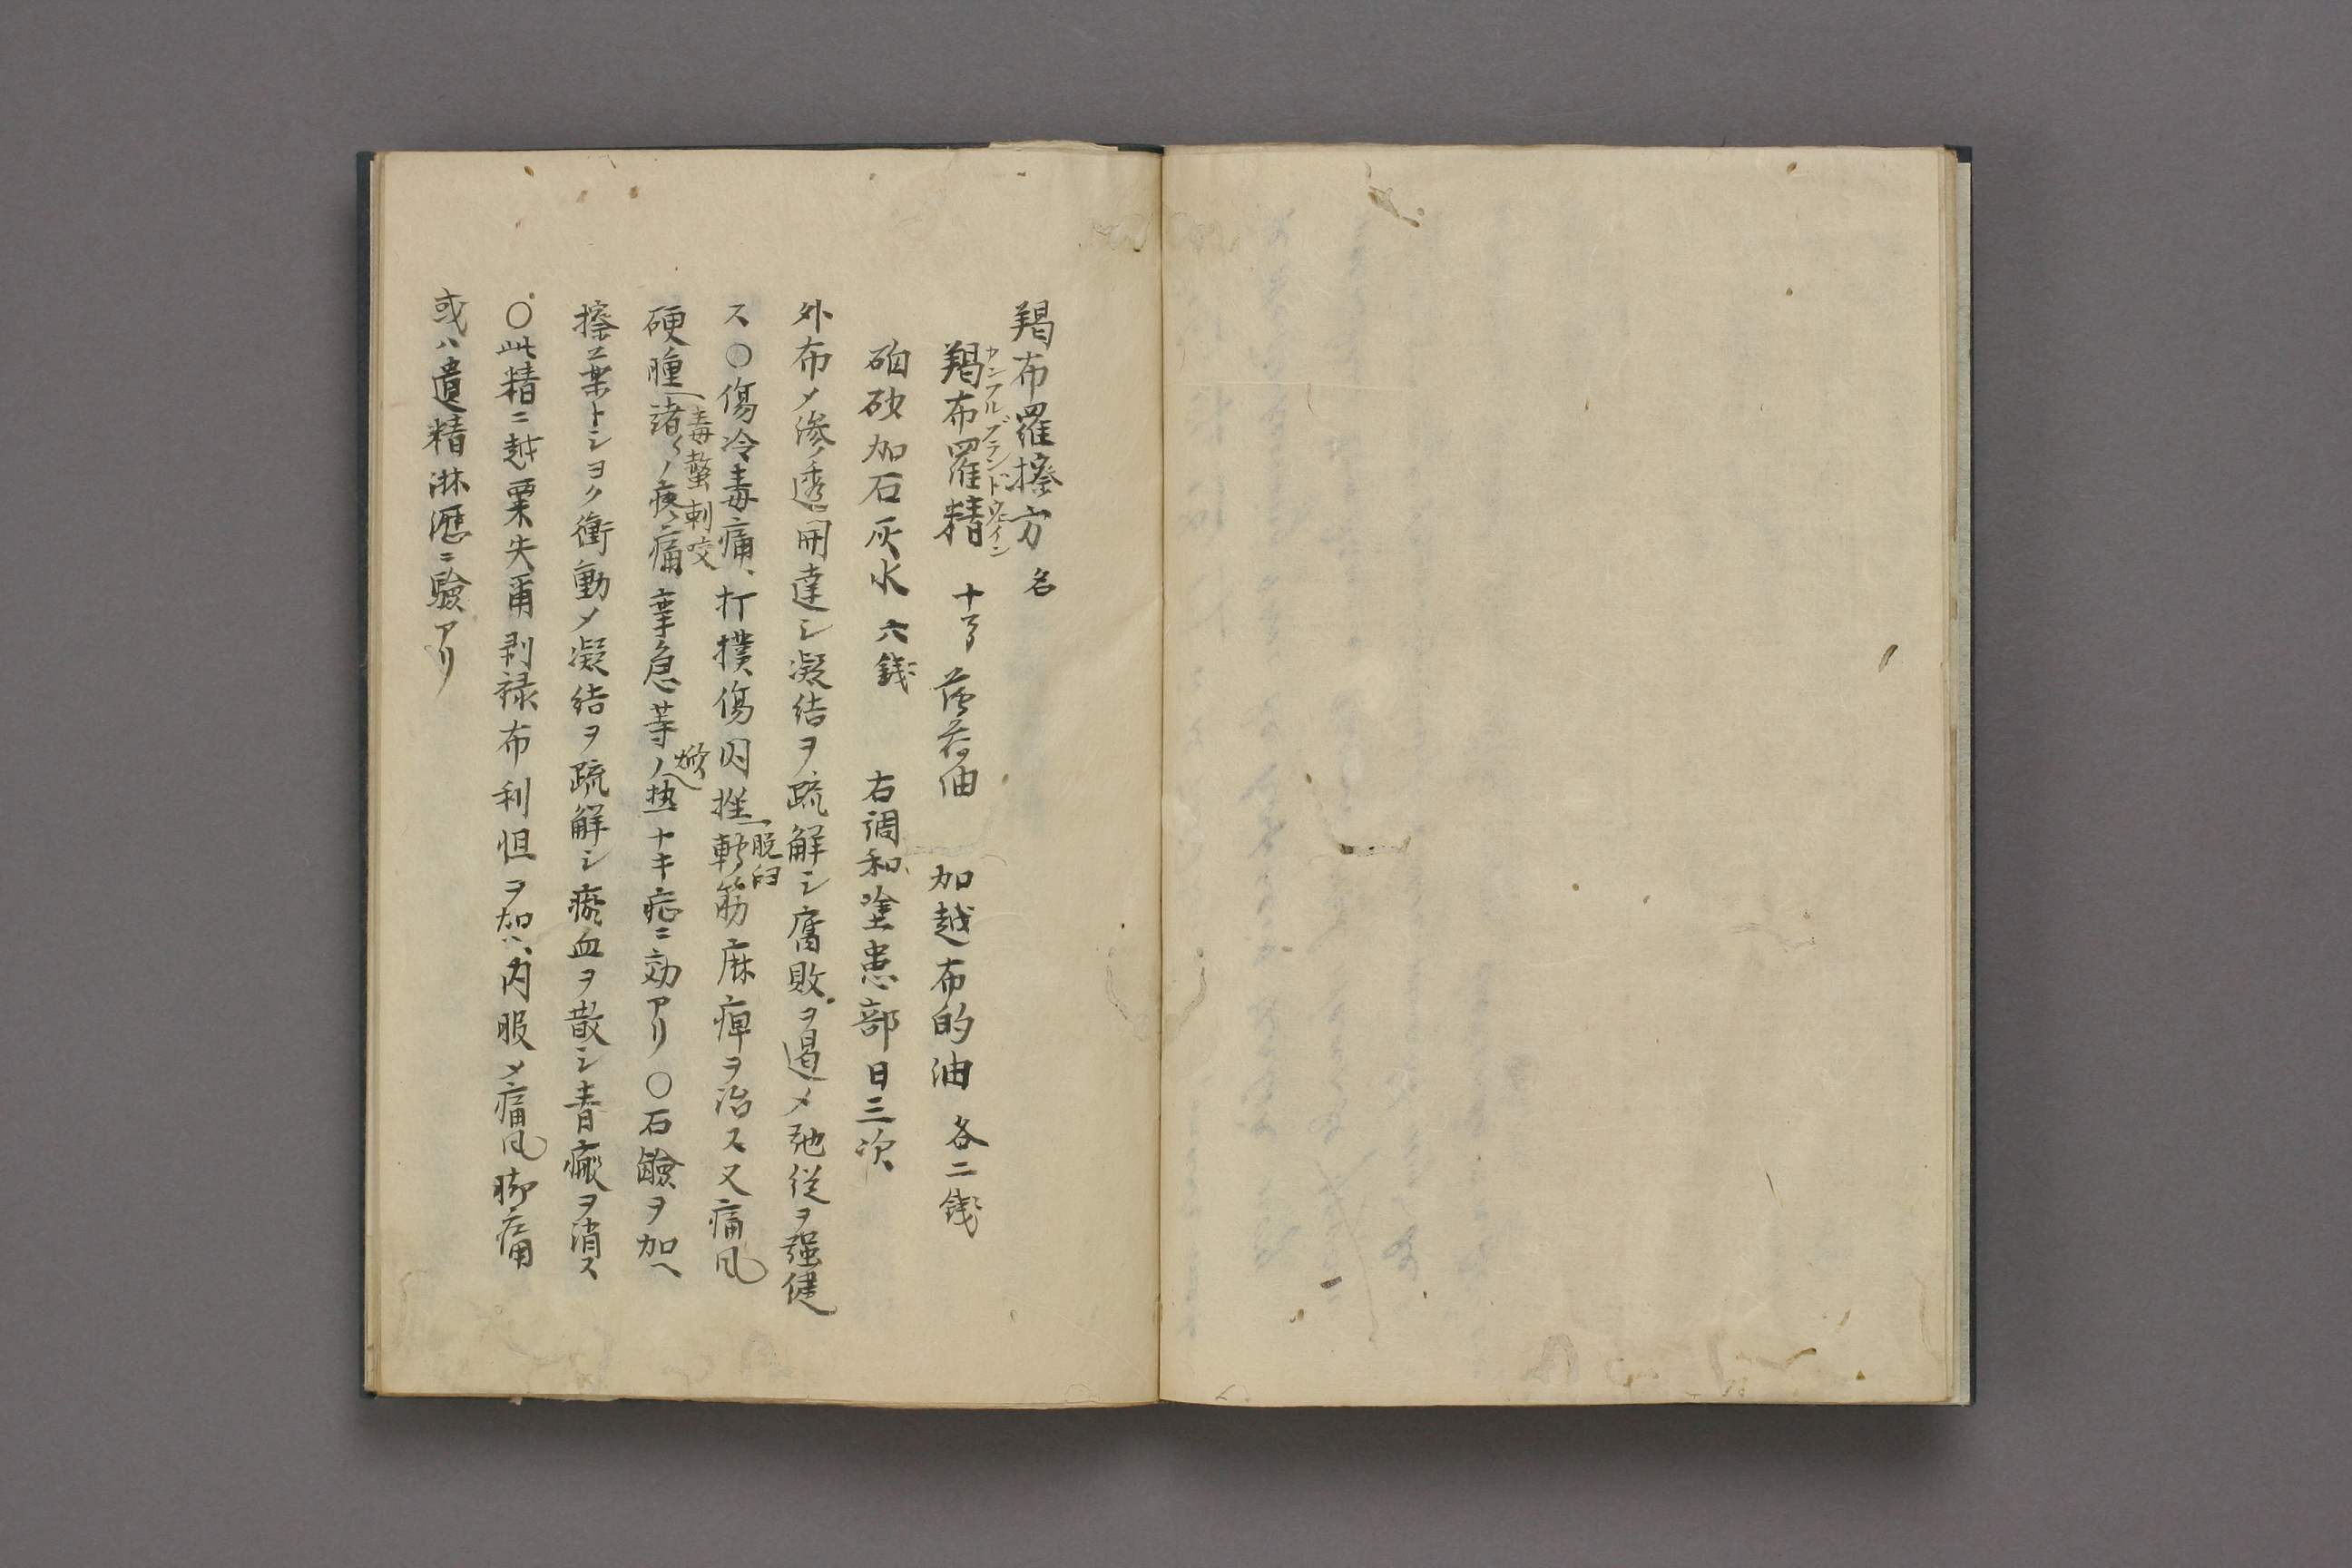 羯布羅擦方 名
カンフルブランドウェイン
羯布羅精 十 薄荷油 加越布的油 各二銭
硇砂加石灰水 六銭 右調和塗患部日三次
外布メ滲透開達シ凝結ヲ疏解シ腐敗ヲ遏メ弛従ヲ强健
ス〇傷冷毒痛、打撲傷閃挫轉筋麻痺ヲ治ス又痛風
脱臼
硬腫諸々ノ疼痛 急等ノ热ナキ症ニ効アリ〇石鹸ヲ加ヘ
毒螫刺咬
焮
擦薬トシヨク衝動メ凝結ヲ疏解シ瘀血ヲ散シ青瘢ヲ消ス
〇此精ニ越栗失爾剥禄布利怛ヲ加ヘ内服メ痛風脚痛
或ハ遺精淋瀝ニ験アリ